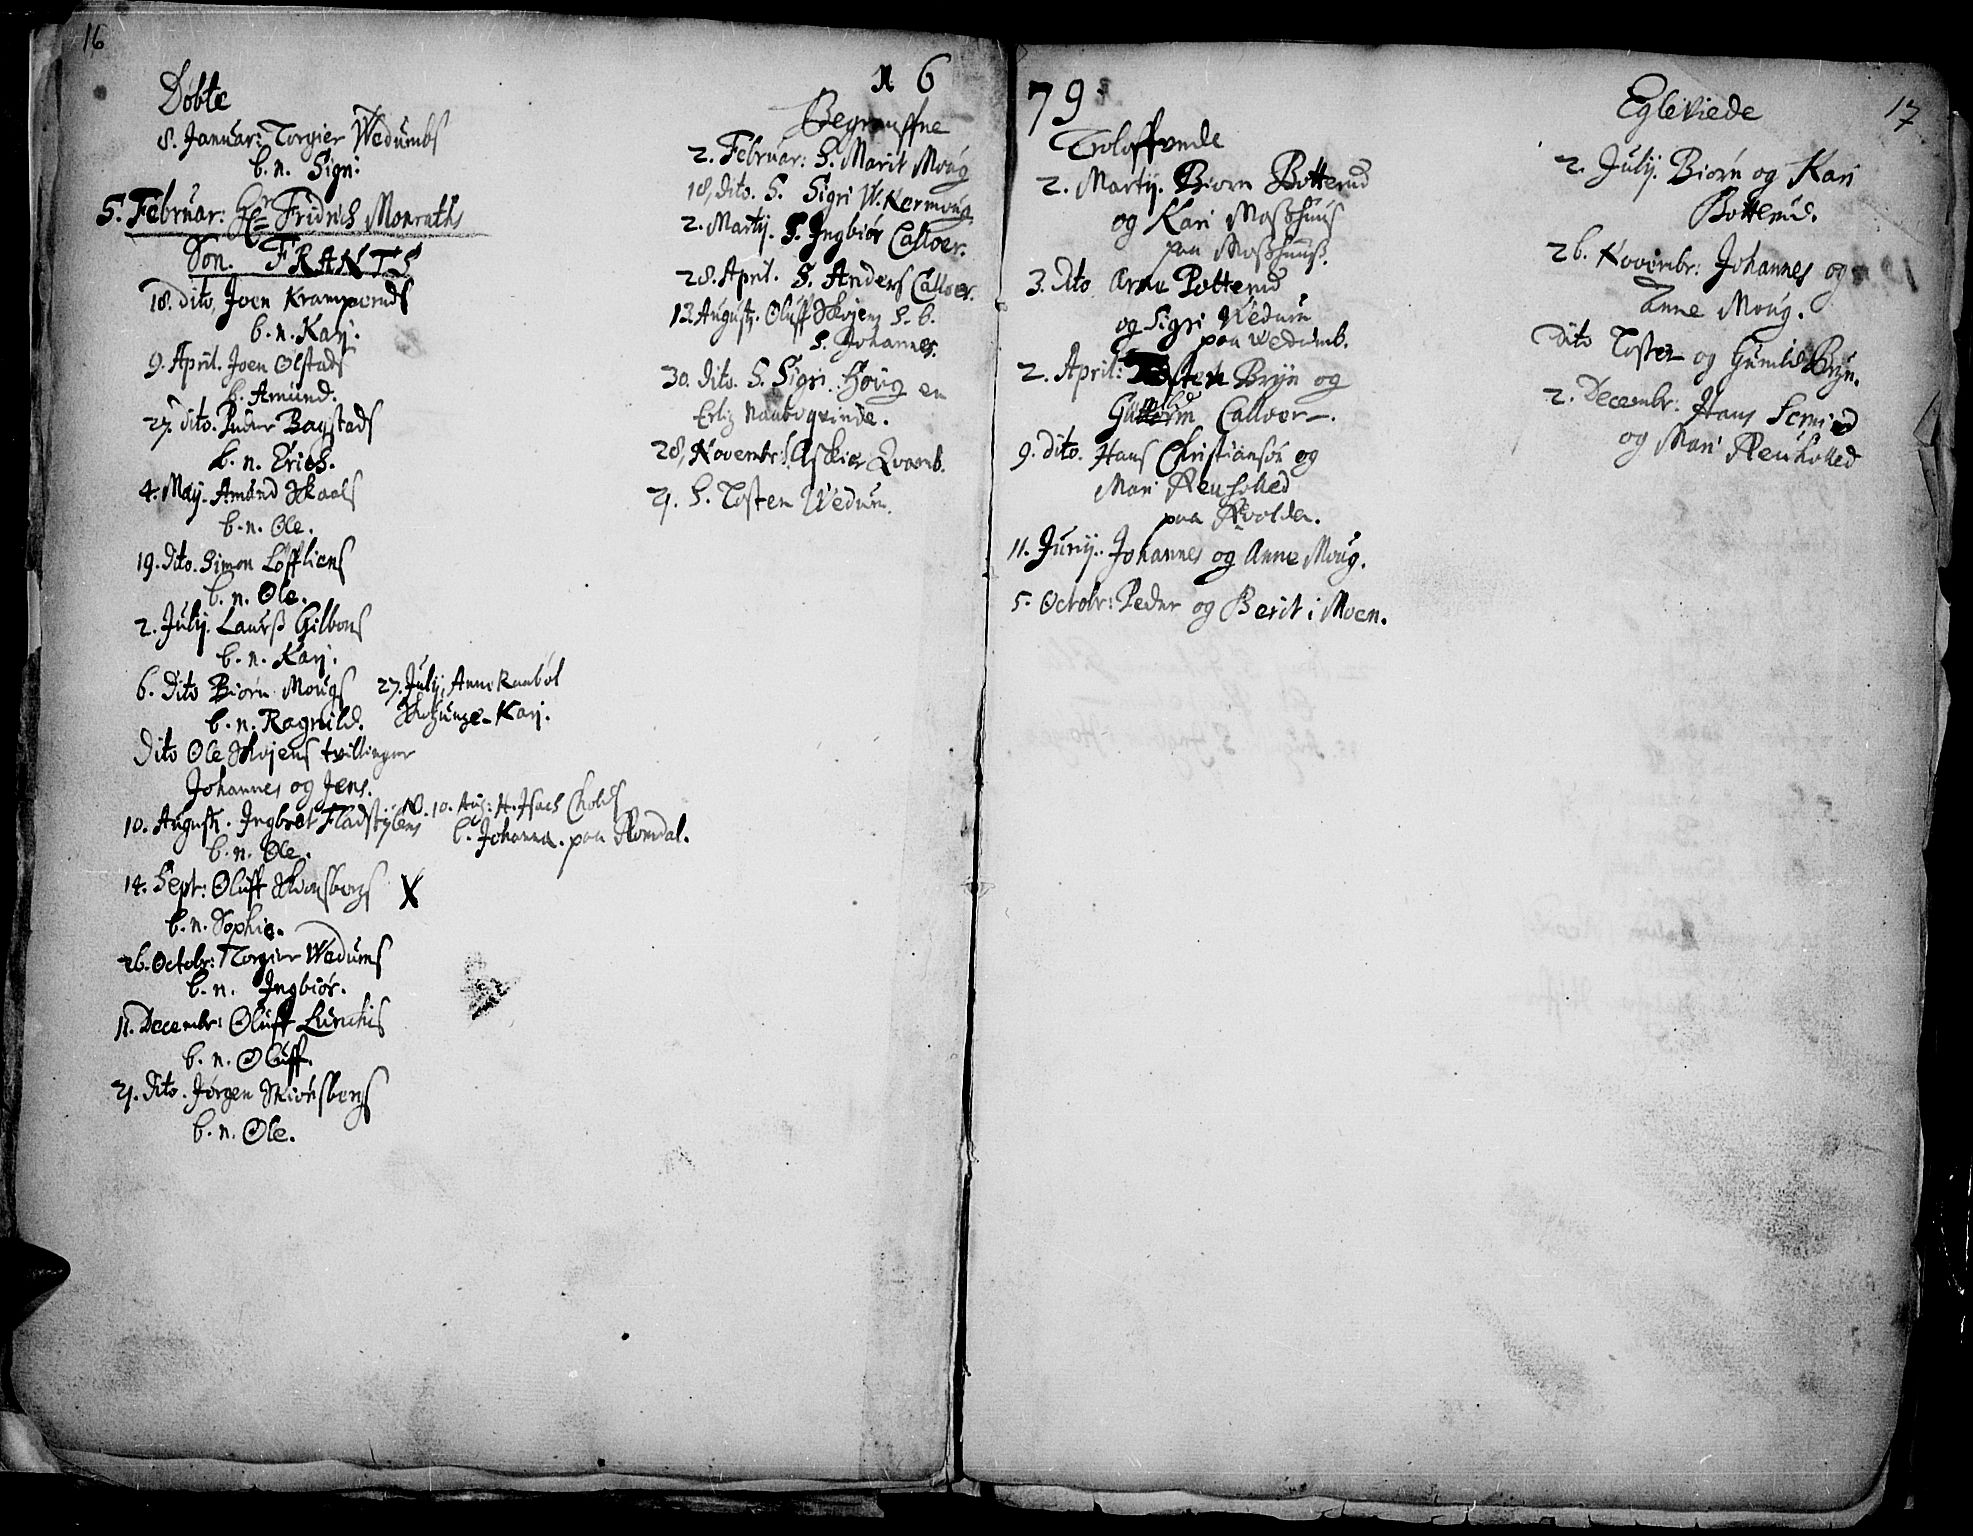 16
Døbte
8. Januar: Torgier Wedumbs
b. n. Sigri
5. Februar: Hr Fridrich Monraths
Søn. FRANTS
18. dito, Joen Kramperuds
b. n. Karj.
9. April. Joen Olstads
b. Amund.
27. dito. Peder Bagstads
b. n. Erich.
4. Maij. Amund Skaals
b. n. Ole.
19. Dito. Simon Løffliens
b. n. Ole.
2. Julij. Laurß Gilbons
b. n. Karj.
6. Dito Biørn Mougs
b. n. Ragnild.
27. Julij. Anne Raabøl
Karj.
Dito Ole Skojens tvillinger
Johannes og Jens.
10. Augustj. Ingbret Fladstylens
b. n. Ole.
10. Aug: H.
b. Johanna. paa Romdal.
14. Sept: Oluff Skionsbergs X
b. n. Sophie.
26. Octobr: Torgier Wedums
b. n. Ingbiør.
11. Decembr: Oluff
b. n. Oluff.
21. dito. Jørgen Skiønsbergs
b. n. Ole.
16
Begraffne
2. Februar: S. Marit Moug
18, dito. S. Sigri W. Kermoug
2. Martij. S. Ingbiør Calloer.
28. April. S. Anders Calloer.
13. Augustj. Oluff Skojens S. b.
S. Johannes.
30. dito. S. Sigri Houg en
Erlig Nabo qvinde.
28, Novembr: S. Askier Qvamb.
21. S. Tosten Wedum.
79
Troloffvede
2. Martij. Biørn Botterud
og Kari Moßhuus
paa Moßhuuß.
3. Dito Arne Potterud
og Sigri Wedum
paa Wedumb.
2. April: Tosten Bryn og
Calloer.
9. dito. Hans Christiansøn og
Mari
paa Kvolden.
11. Junij. Johannes og Anne Moug.
5. Octobr: Peder og Berit i Moen.
17
Egteviede
2. Julij. Biørn og Kari
Botterud.
26. Novembr: Johannes og
Anne Moug.
Dito Tosten og Gunild Bryn.
2. Decembr: Hans
og Mari